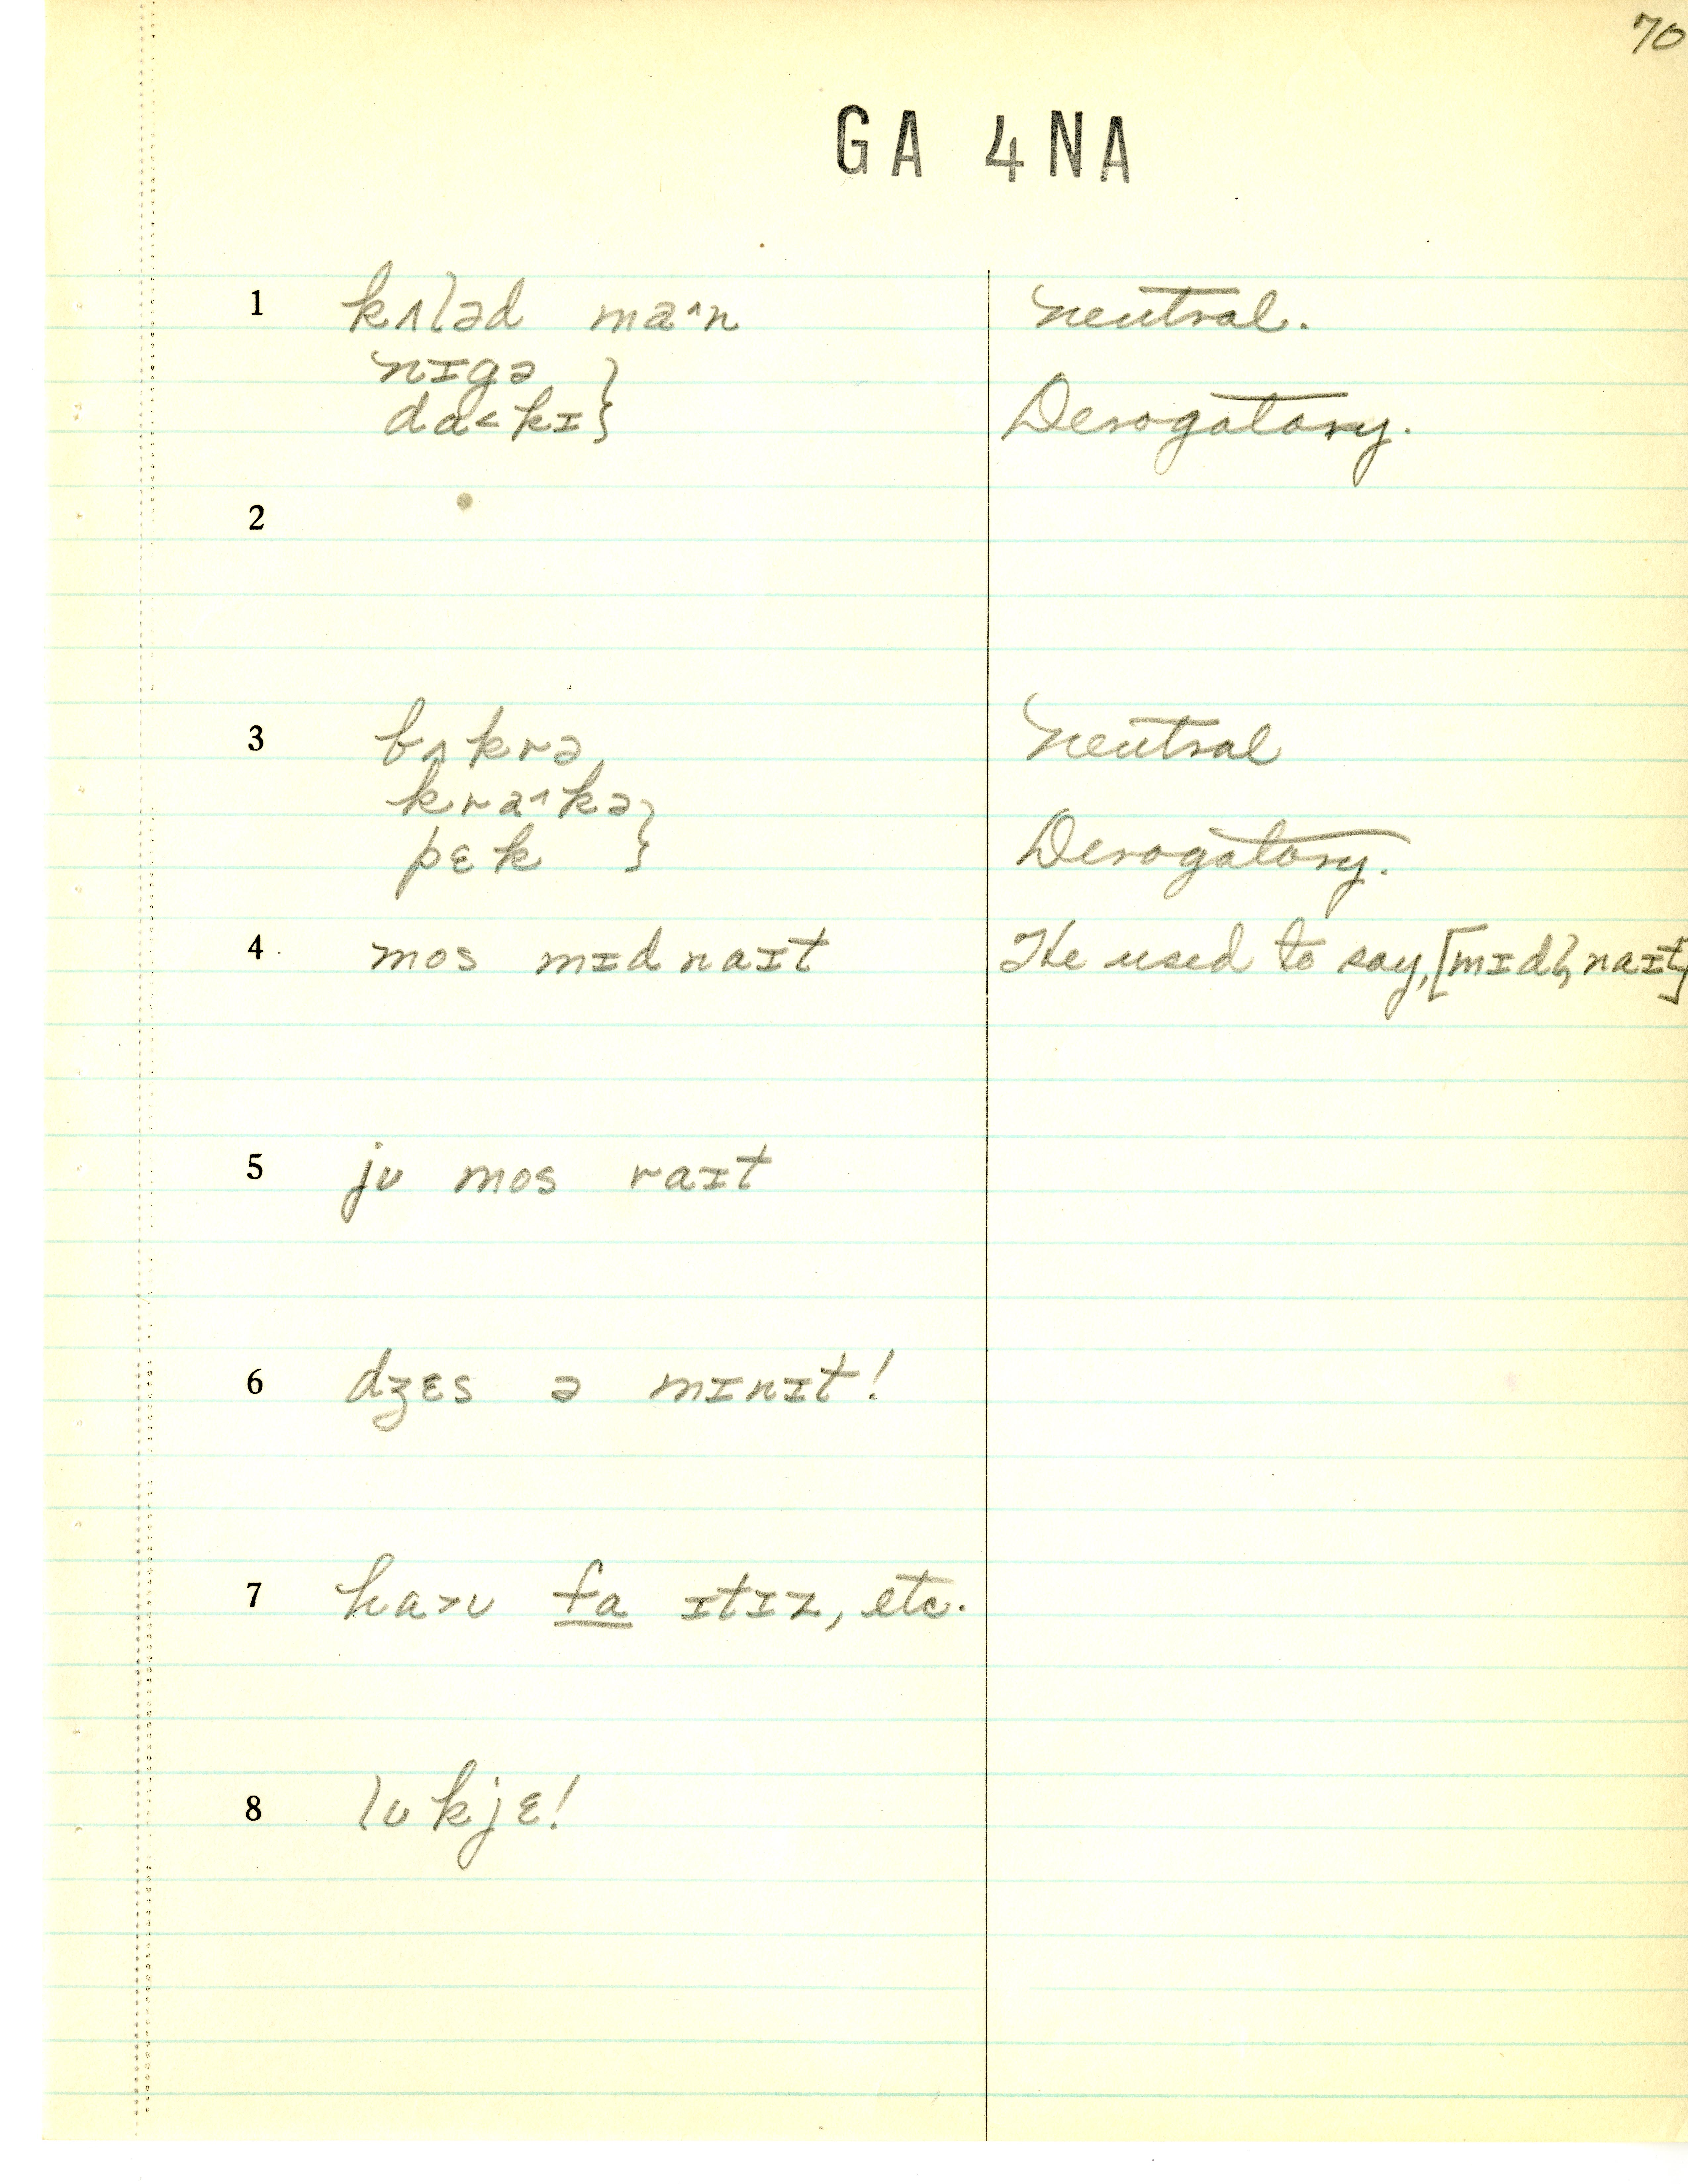 70
GA 4NA
1 kʌləd ma^n Neutral.
nɪgə }
da<kɪ } Derogatory.
2
3 bʌkrə Neutral
kra^kə }
pɛk } Derogatory.
4 mos mɪdnaɪt He used to say, [mɪdl̩naɪt]
5 jʊ mos raɪt
6 dʒɛs ə mɪnɪt!
7 ha>ʊ fa ɪtɪz, etc.
8 lʊkjɛ!